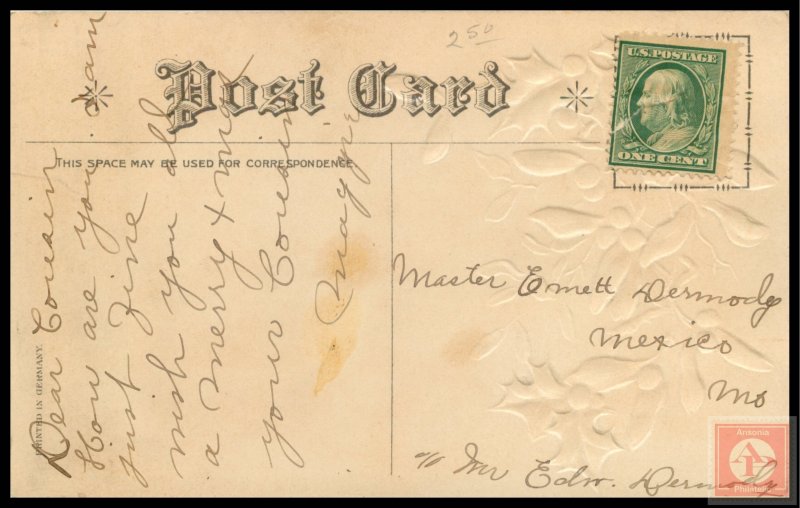 250
Post Card
THIS SPACE MAY BE USED FOR CORRESPONDENCE.
U.S. POSTAGE
ONE CENT
Dear Cousin
How are you I am
just fine
wish you all
a merry + mx
your Cousin
Mayme
PRINTED IN GERMANY.
Master Emett Dermody
Mexico
Mo
c/o Mr Edw. Dermody
Ansonia
Philatelic